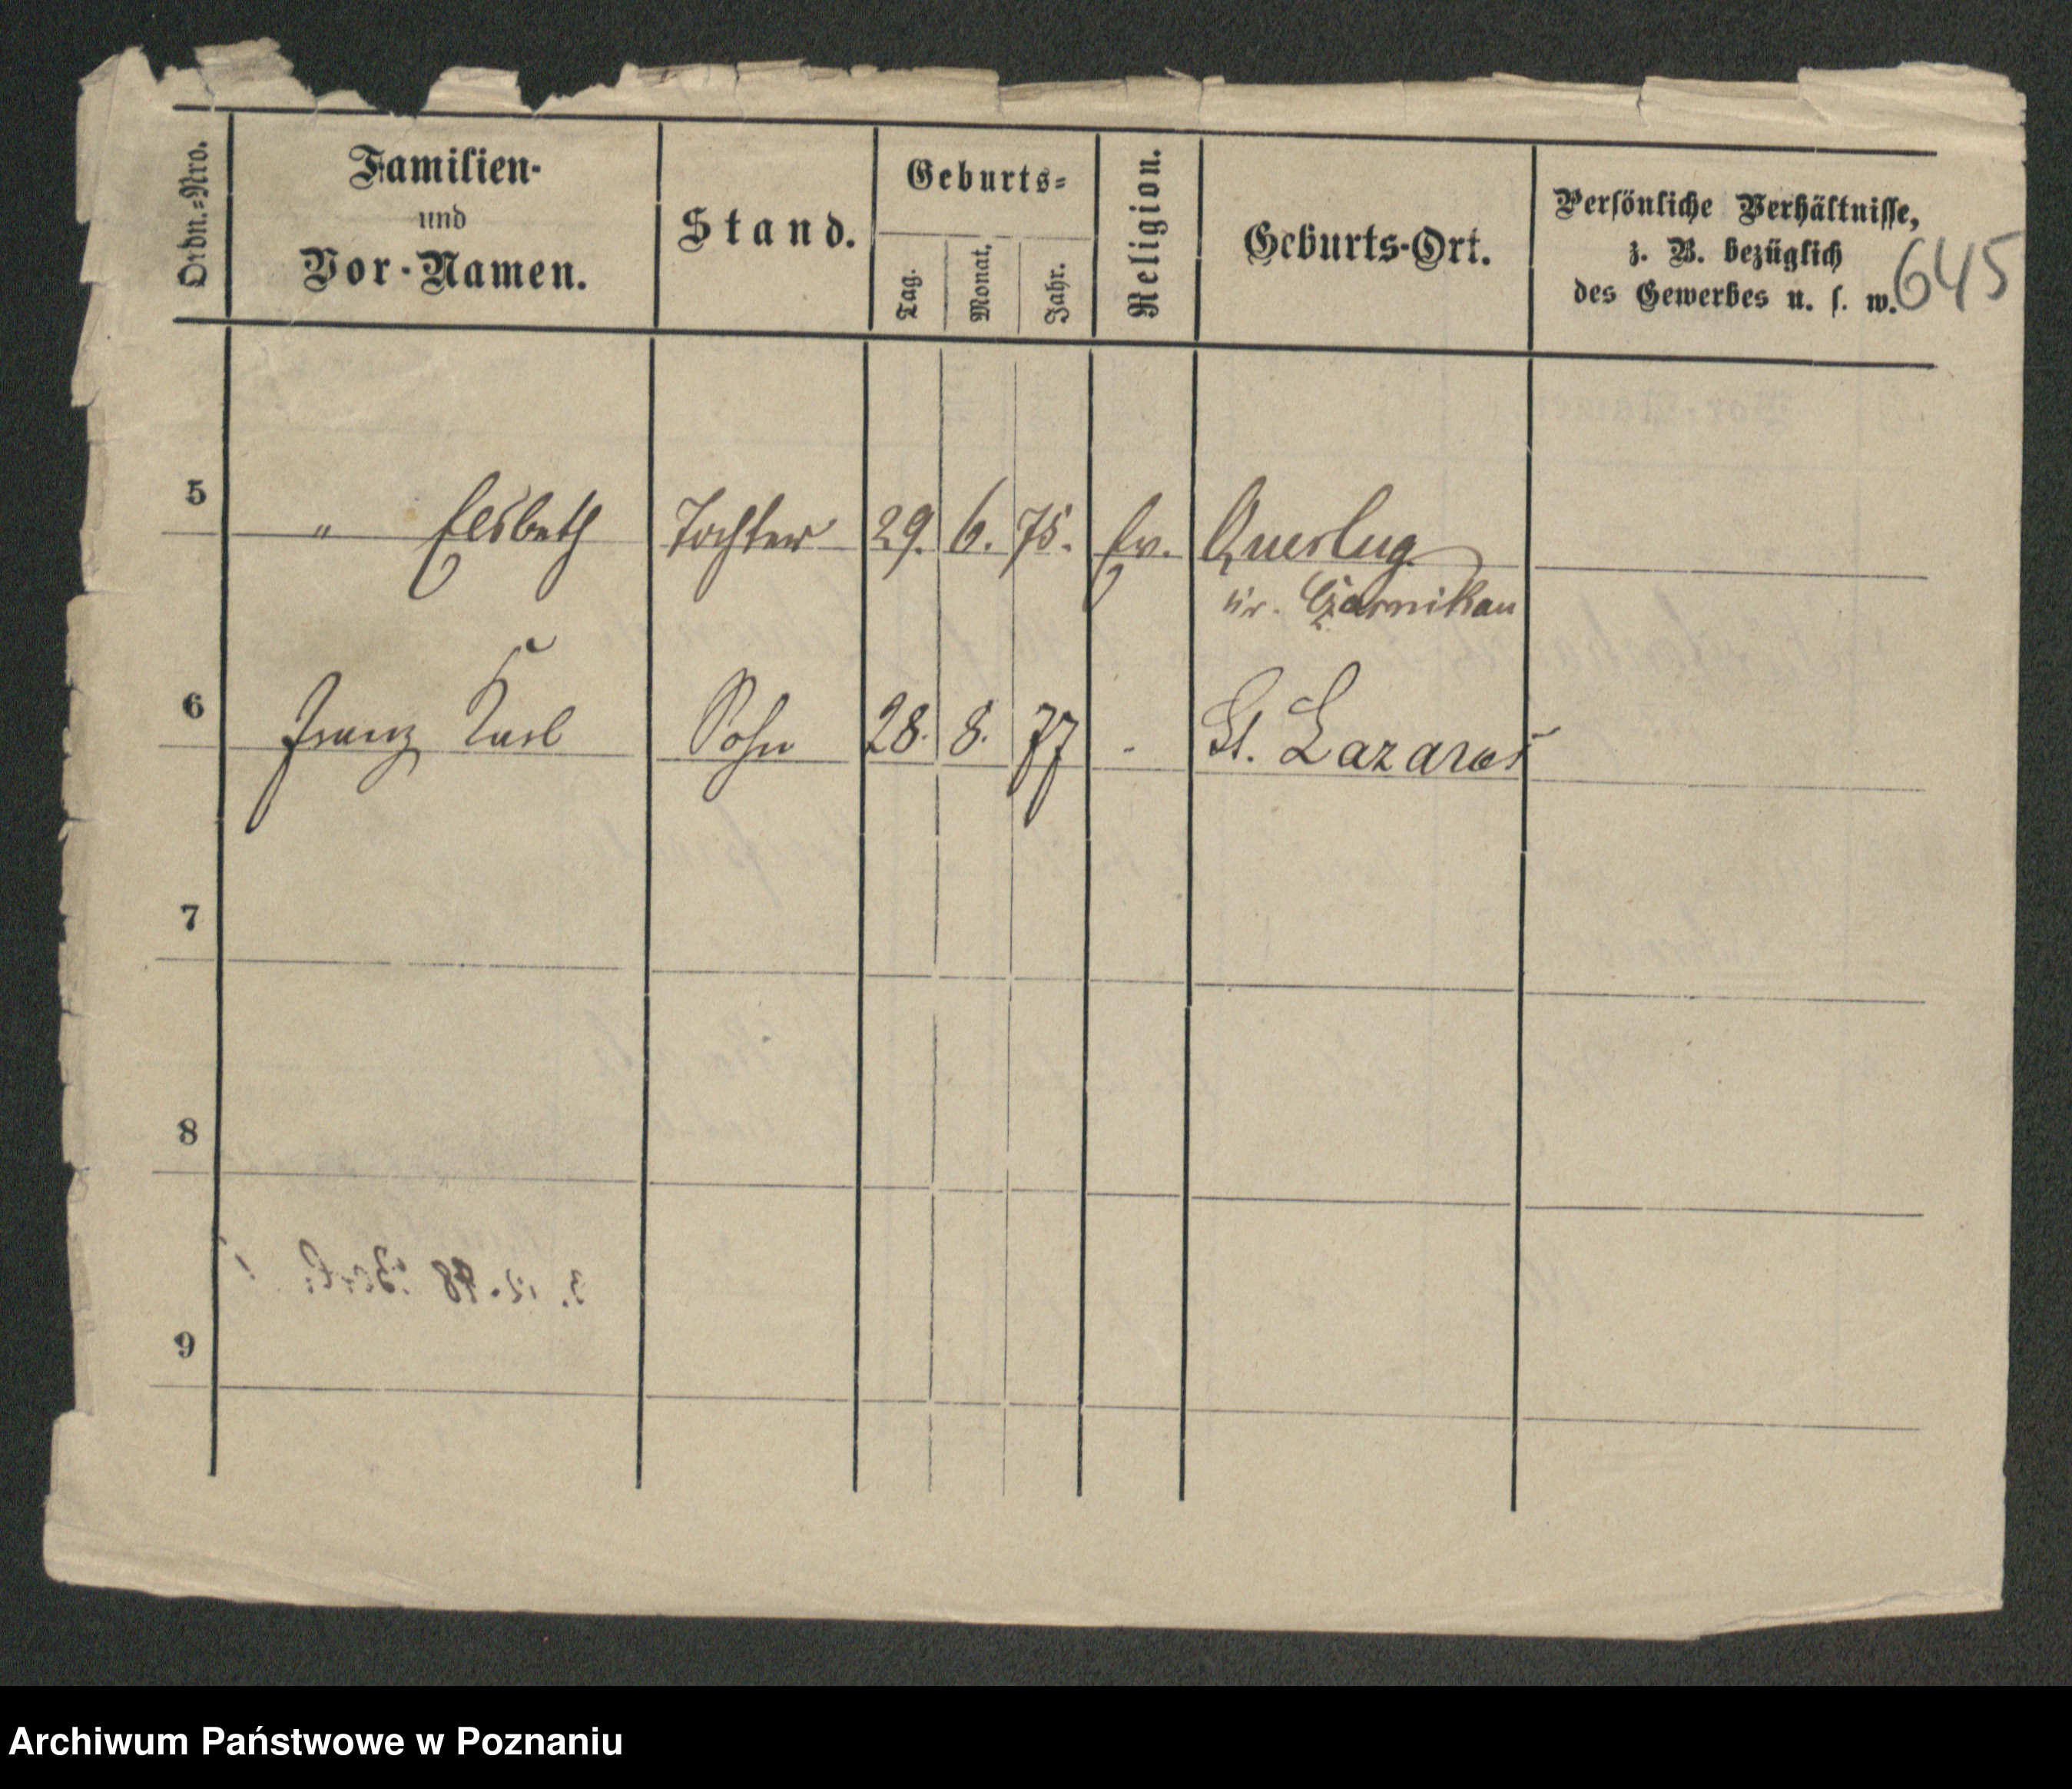 Ordn.-Nro.
Familien-
und
Vor-Namen.
Stand.
Geburts-
Tag.
Monat.
Jahr.
Religion.
Geburts-Ort.
Persönliche Verhältnisse,
z. B. bezüglich
des Gewerbes u. s. w.
645
5 " Elsbeth Tochter 29. 6. 75. Ev. Querlug
Kr. Czarnikau
6 Franz Karl Sohn 28. 8. 77 - St. Lazarus
7
8
9
Archiwum Państwowe w Poznaniu